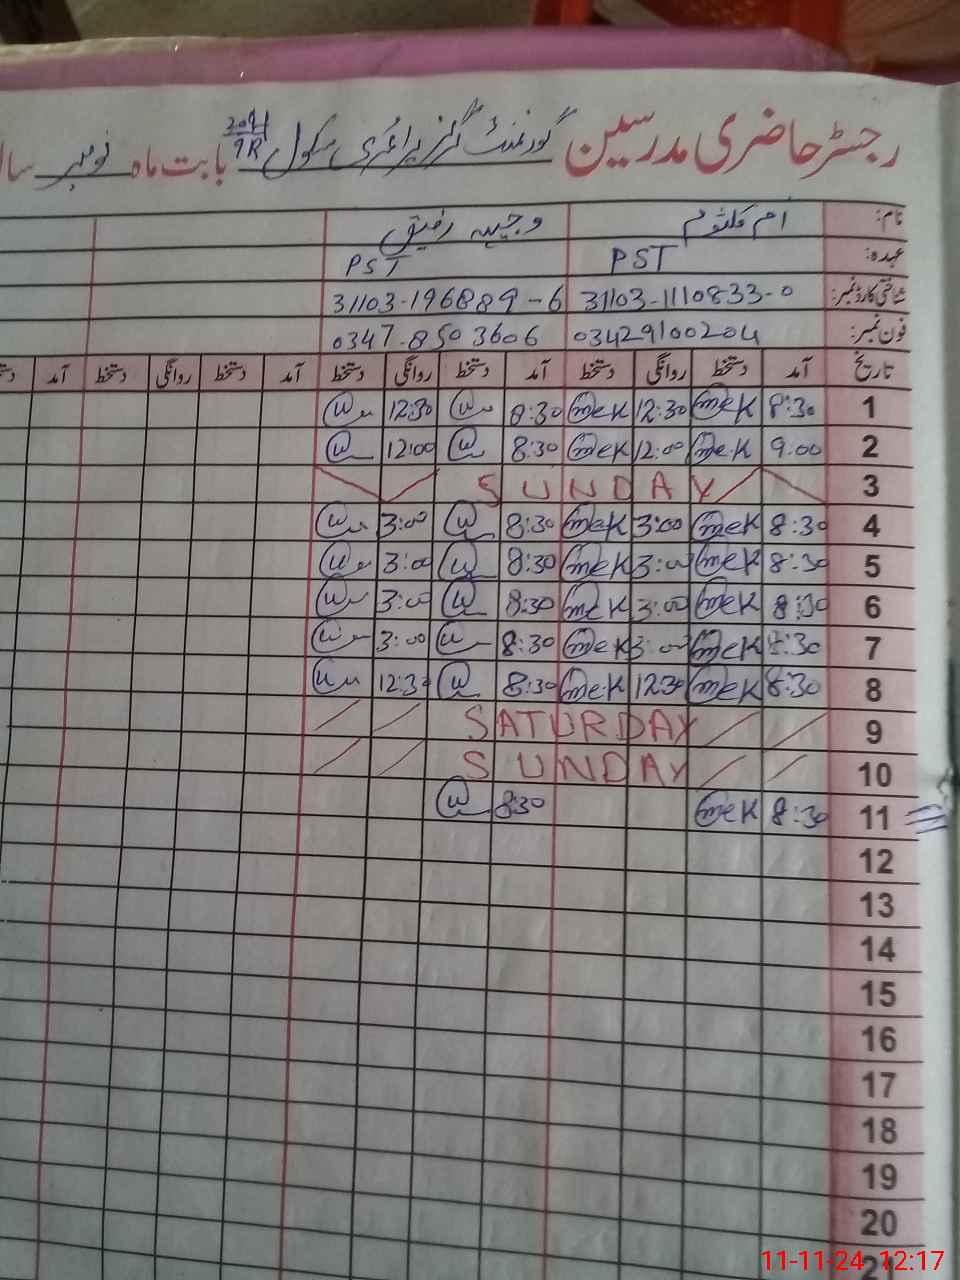 رجسٹر حاضری مدرسین گورنمنٹ گرلز پرائمری سکول 204/9R بابت ماہ نومبر سال
نام: ام کلثوم وجیہہ رفیق
عہدہ: PST PST
شناختی کارڈ نمبر: 31103-1110833-0 31103-196889-6
فون نمبر: 03429100204 0347-8503606
تاریخ آمد دستخط روانگی دستخط آمد دستخط روانگی دستخط آمد دستخط روانگی دستخط آمد
1 8:30 meK 12:30 meK 8:30 12:30
2 9:00 meK 12:00 meK 8:30 12:00
3 SUNDAY
4 8:30 meK 3:00 meK 8:30 3:00
5 8:30 meK 3:00 meK 8:30 3:00
6 8:30 meK 3:00 meK 8:30 3:00
7 8:30 meK 3:00 meK 8:30 3:00
8 8:30 meK 12:30 meK 8:30 12:30
9 SATURDAY
10 SUNDAY
11 8:30 meK 8:30
12
13
14
15
16
17
18
19
20
11-11-24 12:17